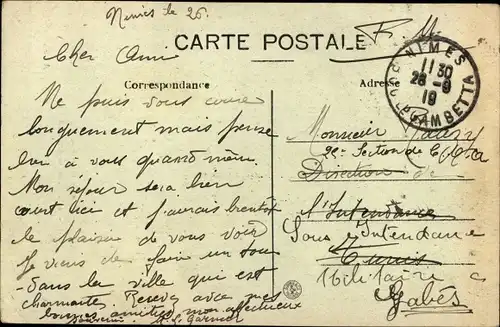 Nimes le 26.
F. M.
CARTE POSTALE
Correspondance
Adresse
NIMES
11 30
26 - 9
19
GAMBETTA
Cher Ami
Ne puis vous
longuement mais pense
bien à vous quand même.
Mon séjour sera bien
court ici et j'aurai bientôt
le plaisir de vous voir
Je viens de faire un tour
dans la ville qui est
charmante. Recevez avec mes
bonnes amitiés mon affectueux
souvenir.
Monsieur
2e Section de
Direction de
l'Intendance
Sous Intendance
Tunis
Militaire à
Gabès